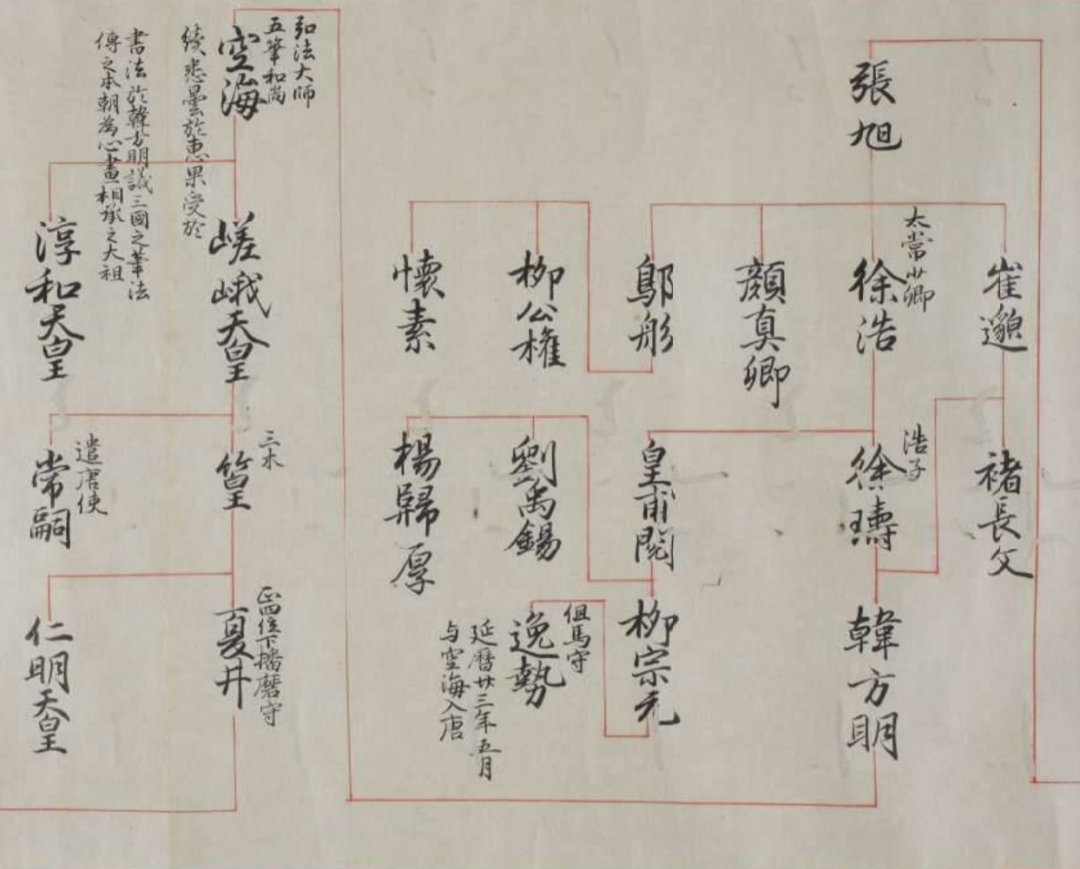 張旭
崔邈
太常少卿
徐浩
顔真卿
鄔彤
柳公權
懷素
褚長文
浩子
徐璹
皇甫閲
劉禹錫
楊歸厚
韓方明
柳宗元
但馬守
逸勢
延暦廿三年五月
与空海入唐
弘法大師
五筆和尚
空海
續悉曇於惠果受於
書法於韓方明議三國之筆法
傳之本朝為心畫相承之大祖
嵯峨天皇
淳和天皇
三木
篁
遣唐使
常嗣
正四位下播磨守
夏井
仁明天皇